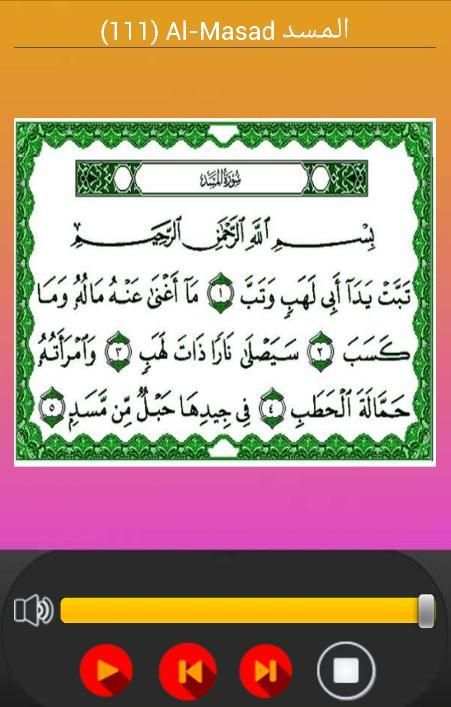 (111) Al-Masad المسد
سورة المسد
بِسْمِ ٱللَّهِ ٱلرَّحْمَٰنِ ٱلرَّحِيمِ
تَبَّتْ يَدَآ أَبِى لَهَبٍ وَتَبَّ ١ مَآ أَغْنَىٰ عَنْهُ مَالُهُۥ وَمَا
كَسَبَ ٢ سَيَصْلَىٰ نَارًا ذَاتَ لَهَبٍ ٣ وَٱمْرَأَتُهُۥ
حَمَّالَةَ ٱلْحَطَبِ ٤ فِى جِيدِهَا حَبْلٌ مِّن مَّسَدٍۭ ٥